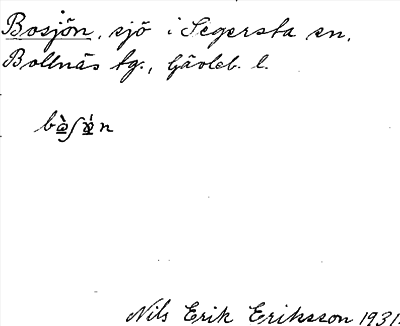 Bosjön, sjö i Segersta sn.
Bollnäs tg., Gävleb. l.
Nils Erik Eriksson 1931.